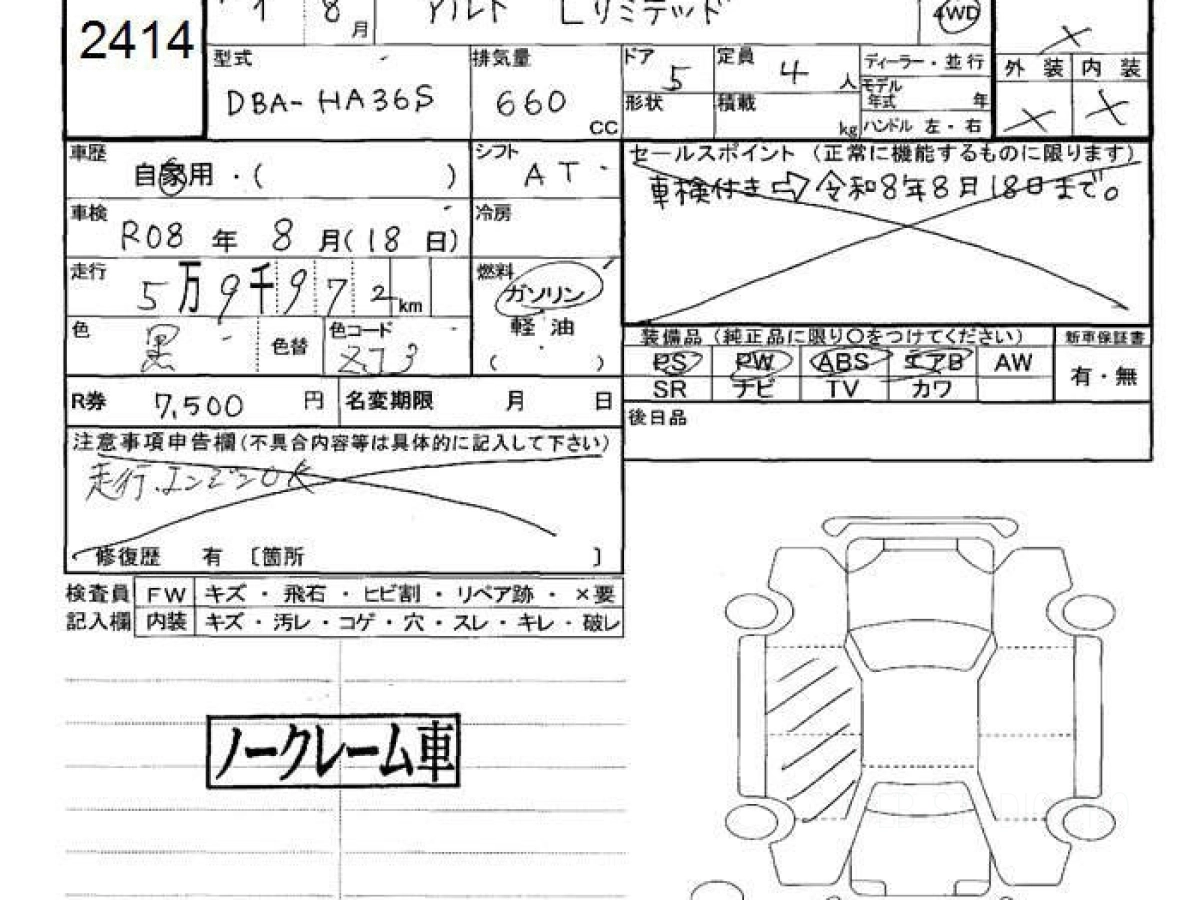 8月 アルト Lリミテッド 4WD
2414
型式 排気量 ドア 5 定員 4人 ディーラー・並行 外装 内装
DBA-HA36S 660 CC 形状 積載 kg モデル年式 年
ハンドル 左・右
車歴 自家用・( ) シフト AT セールスポイント (正常に機能するものに限ります)
車検付き⇨令和8年8月18日まで。
車検 R08年 8月(18日) 冷房
走行 5万9千972km 燃料 ガソリン
軽油
( )
色 黒 色替 色コード ZJ3
装備品 (純正品に限り○をつけてください) 新車保証書
PS PW ABS エアB AW 有・無
SR ナビ TV カワ
R券 7,500円 名変期限 月 日 後日品
注意事項申告欄(不具合内容等は具体的に記入して下さい)
走行.エンジンOK
修復歴 有 〔箇所 〕
検査員 FW キズ・飛石・ヒビ割・リペア跡・×要
記入欄 内装 キズ・汚レ・コゲ・穴・スレ・キレ・破レ
ノークレーム車